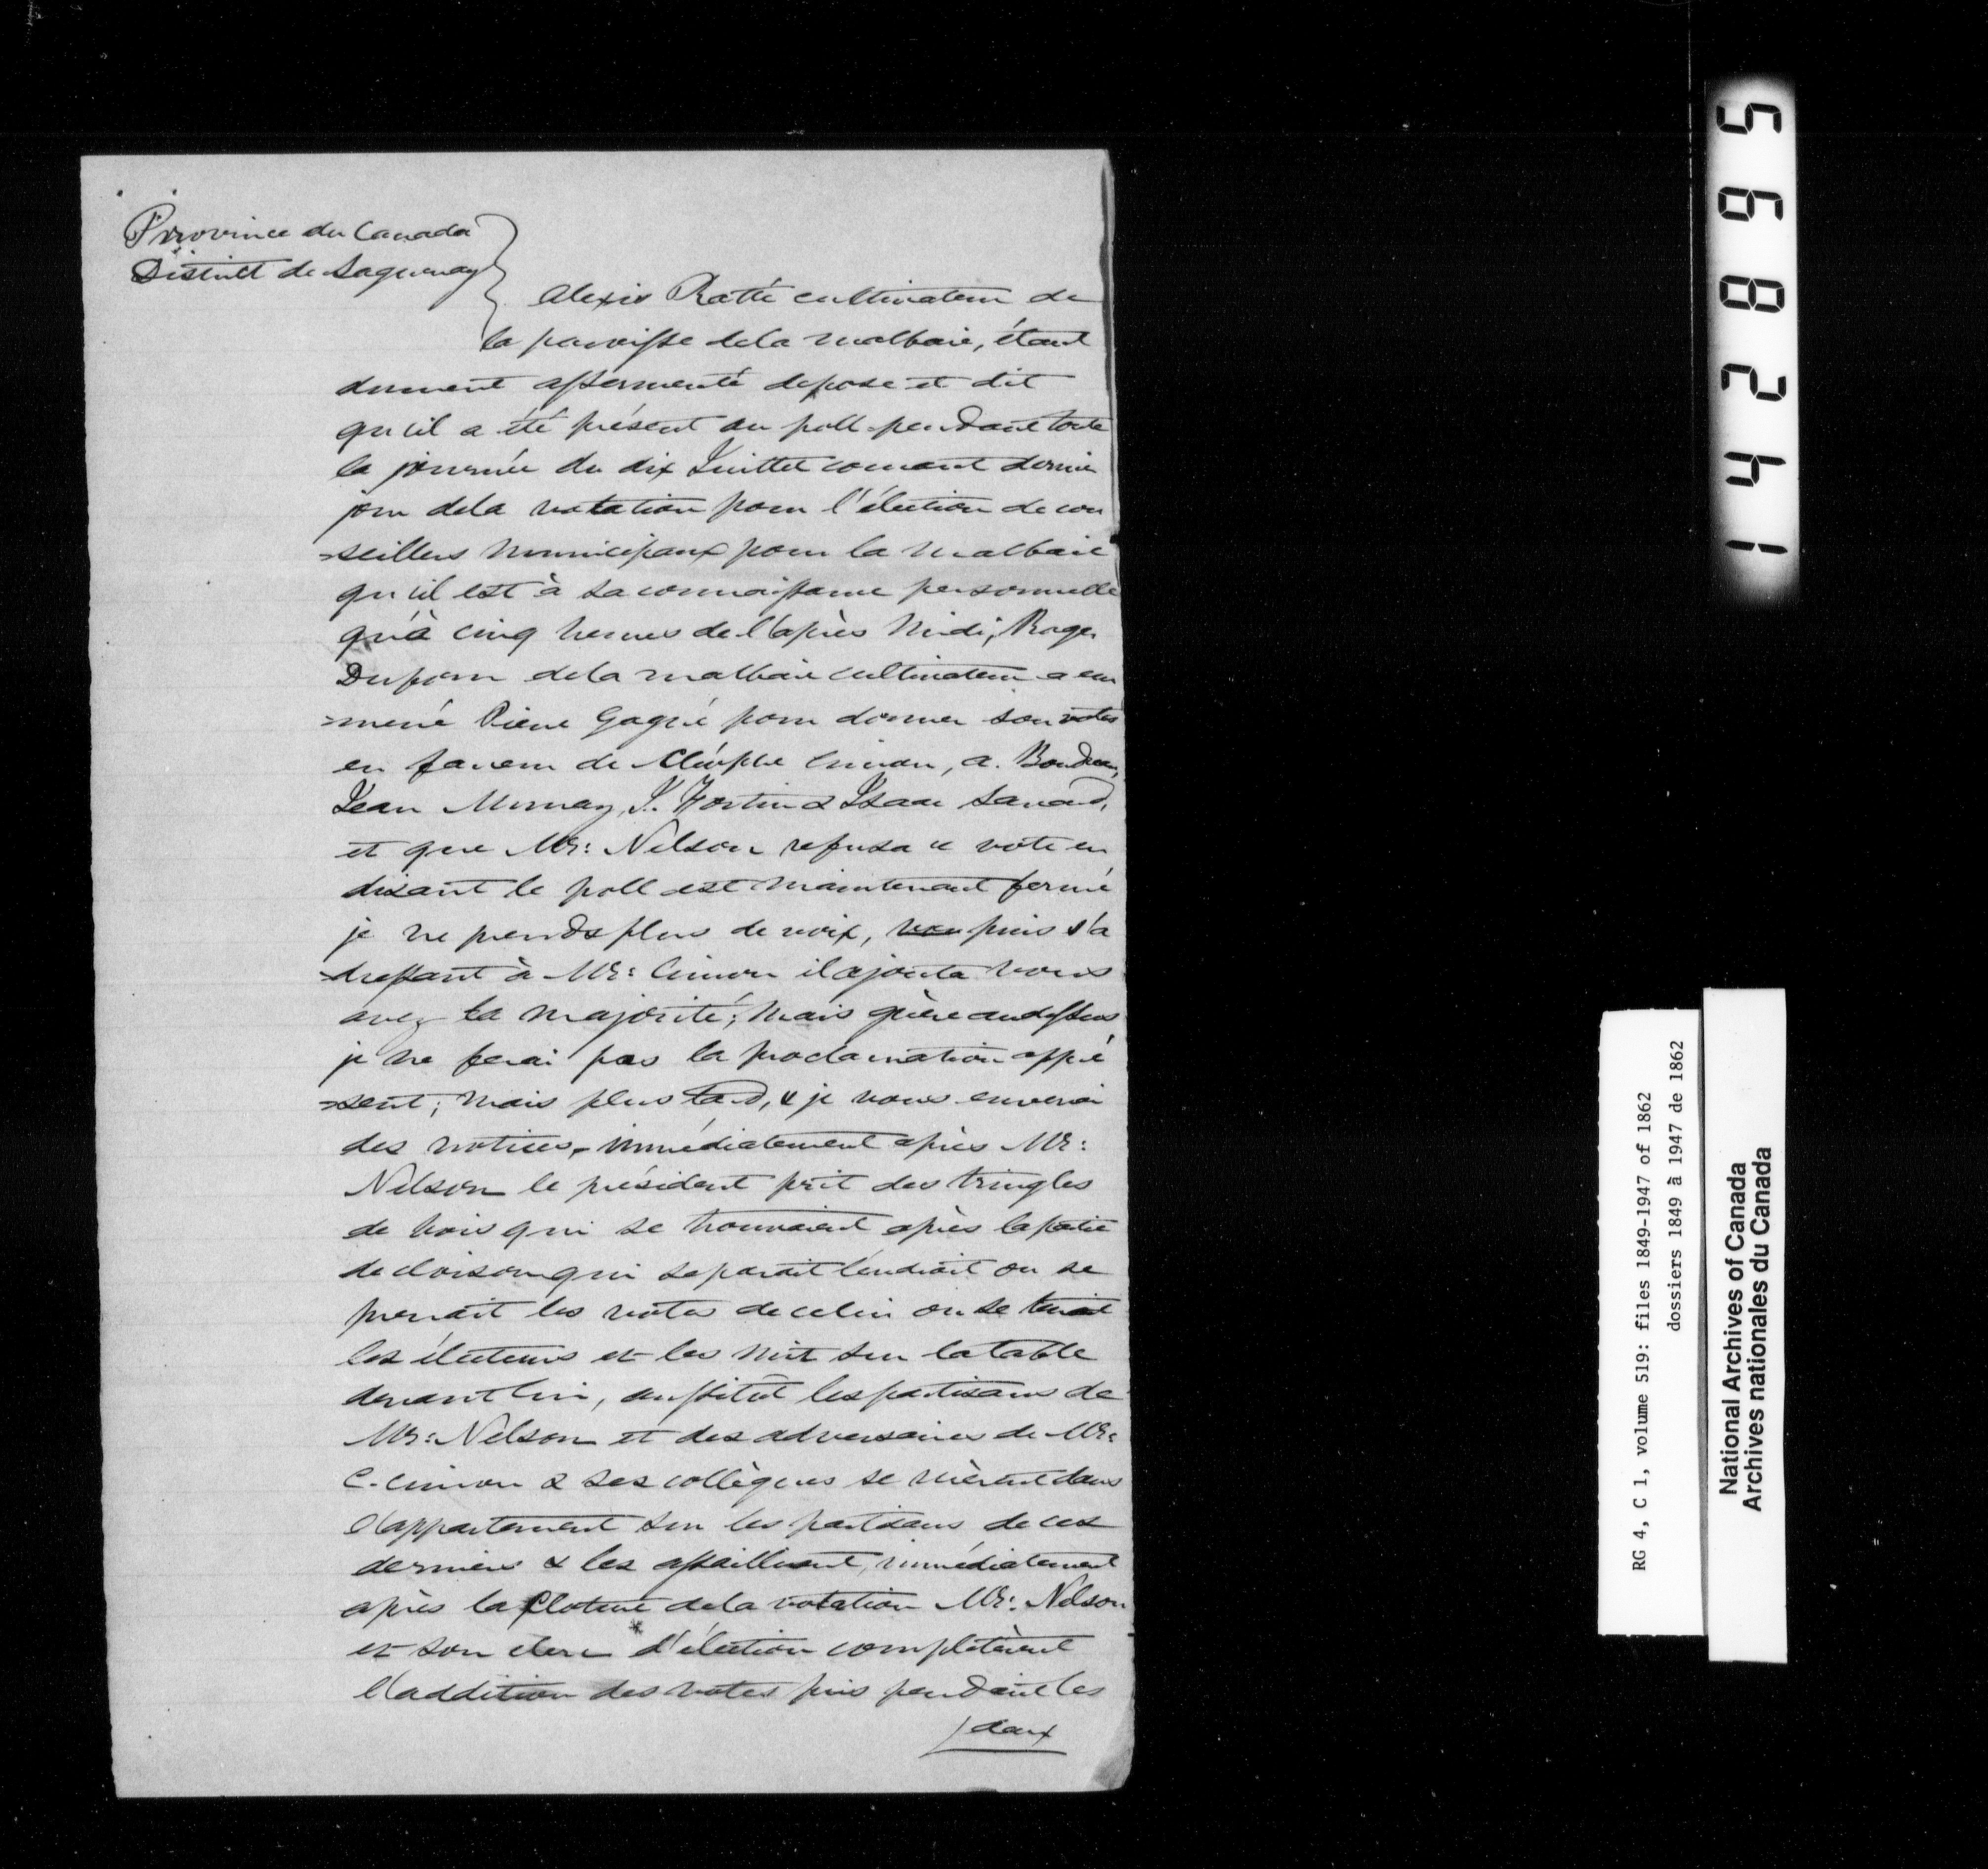 Province du Canada
District de Saguenay
Alexis Ratté cultivateur de
la paroisse dela malbaie, étant
dument assermenté depose et dit
qu'il a été présent au poll pendant toute
la journée du dix Juillet courant dernier
jour dela votation pour l'élection de con
=seillers municipaux pour la malbaie
qu'il est à sa connaissance personnelle
qu'à cinq heures de l'après midi, Roger
Dufour dela malbaie cultivateur a em
=mené Pierre Gagné pour donner son votes
en faveur de Cléophe Cimon, a. Boudreau,
Jean Murray, J. Fortin & Isaac Savard,
et que Mr: Nelson refusa ce vote en
disant le poll est maintenant fermé
je ne prends plus de voix, vou puis s'a
=dressant à Mr: Cimon il ajouta vous
avez la majorité; mais guère au dessus
je ne ferai pas la proclamation appré
=sent; mais plus tard, & je vous enverai
des notices, immédiatement après Mr:
Nelson le président prit des tringles
de bois qui se trouvaient après la partie
de cloison qui separait l'endroit ou se
prenait les votes de celui ou se tenait
les électeurs et les mit sur la table
devant lui, aussitôt les partisans de
Mr: Nelson et des adversaires de Mr:
C. Cimon & ses collègues se ruèrent dans
l'appartement sur les partisans de ces
derniers & les assaillirent, immédiatement
après la Cloture dela votation Mr: Nelson
et son clerc d'élection complétèrent
l'addition des votes puis pendant les
/deux
142895
RG 4, C 1, volume 519: files 1849-1947 of 1862
dossiers 1849 à 1947 de 1862
National Archives of Canada
Archives nationales du Canada